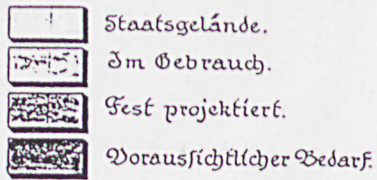 Staatsgelände.
Im Gebrauch.
Fest projektiert.
Voraussichtlicher Bedarf.